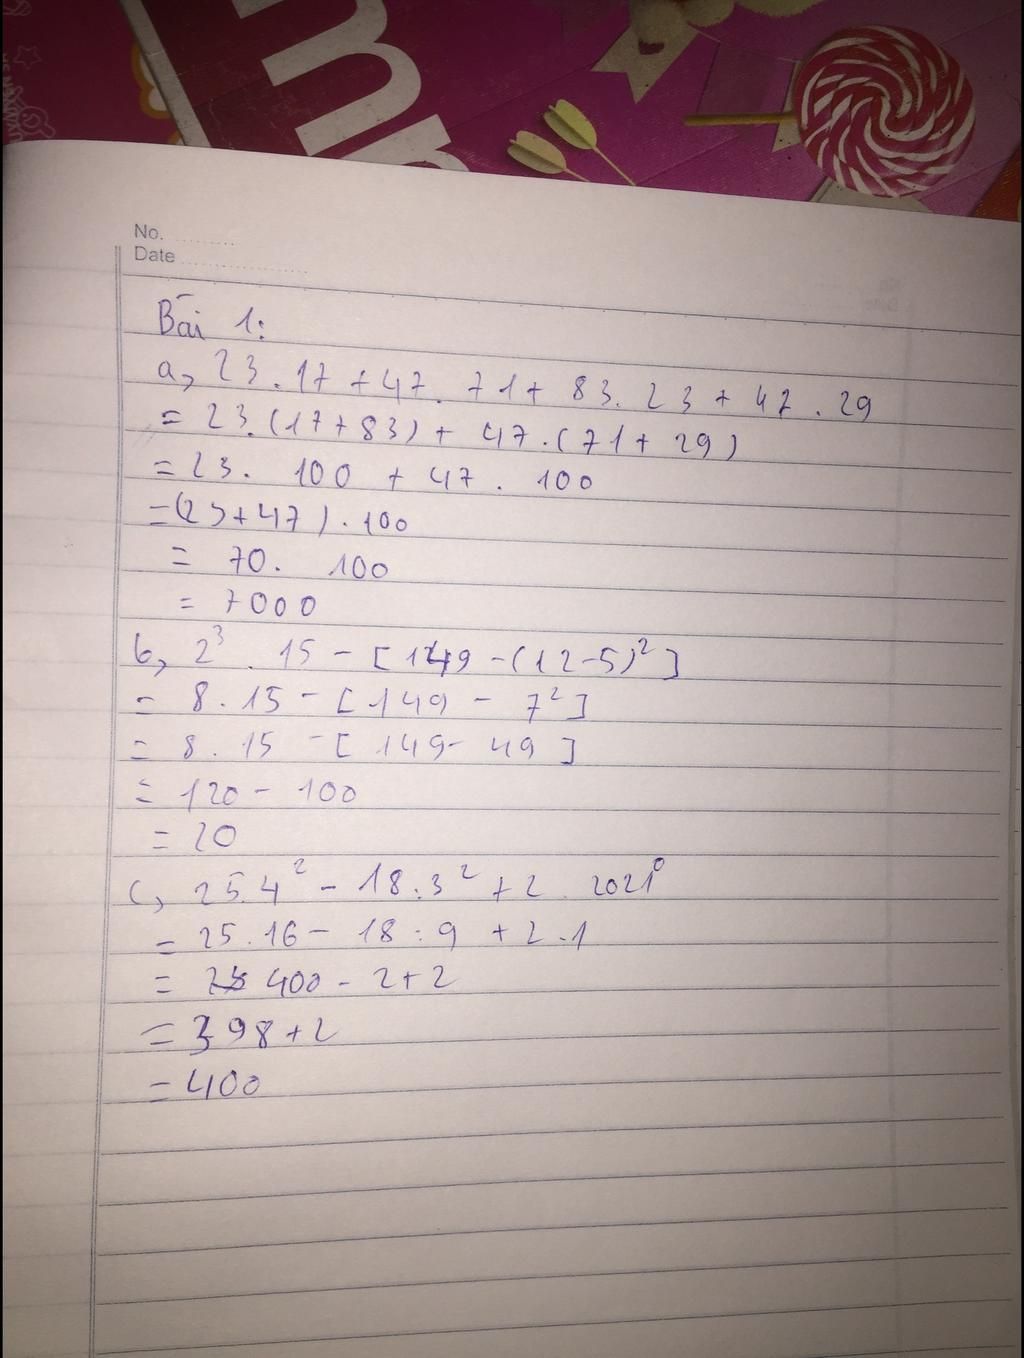 No.
Date
Bài 1:
a, 23.17+47.71+83.23+47.29
= 23.(17+83)+47.(71+29)
= 23. 100 + 47. 100
= (23+47).100
= 70. 100
= 7000
b, 2³.15-[149-(12-5)²]
= 8.15-[149-7²]
= 8.15-[149-49]
= 120-100
= 20
c, 25.4²-18:3²+2.2021⁰
= 25.16-18:9+2.1
= 400-2+2
= 398+2
= 400